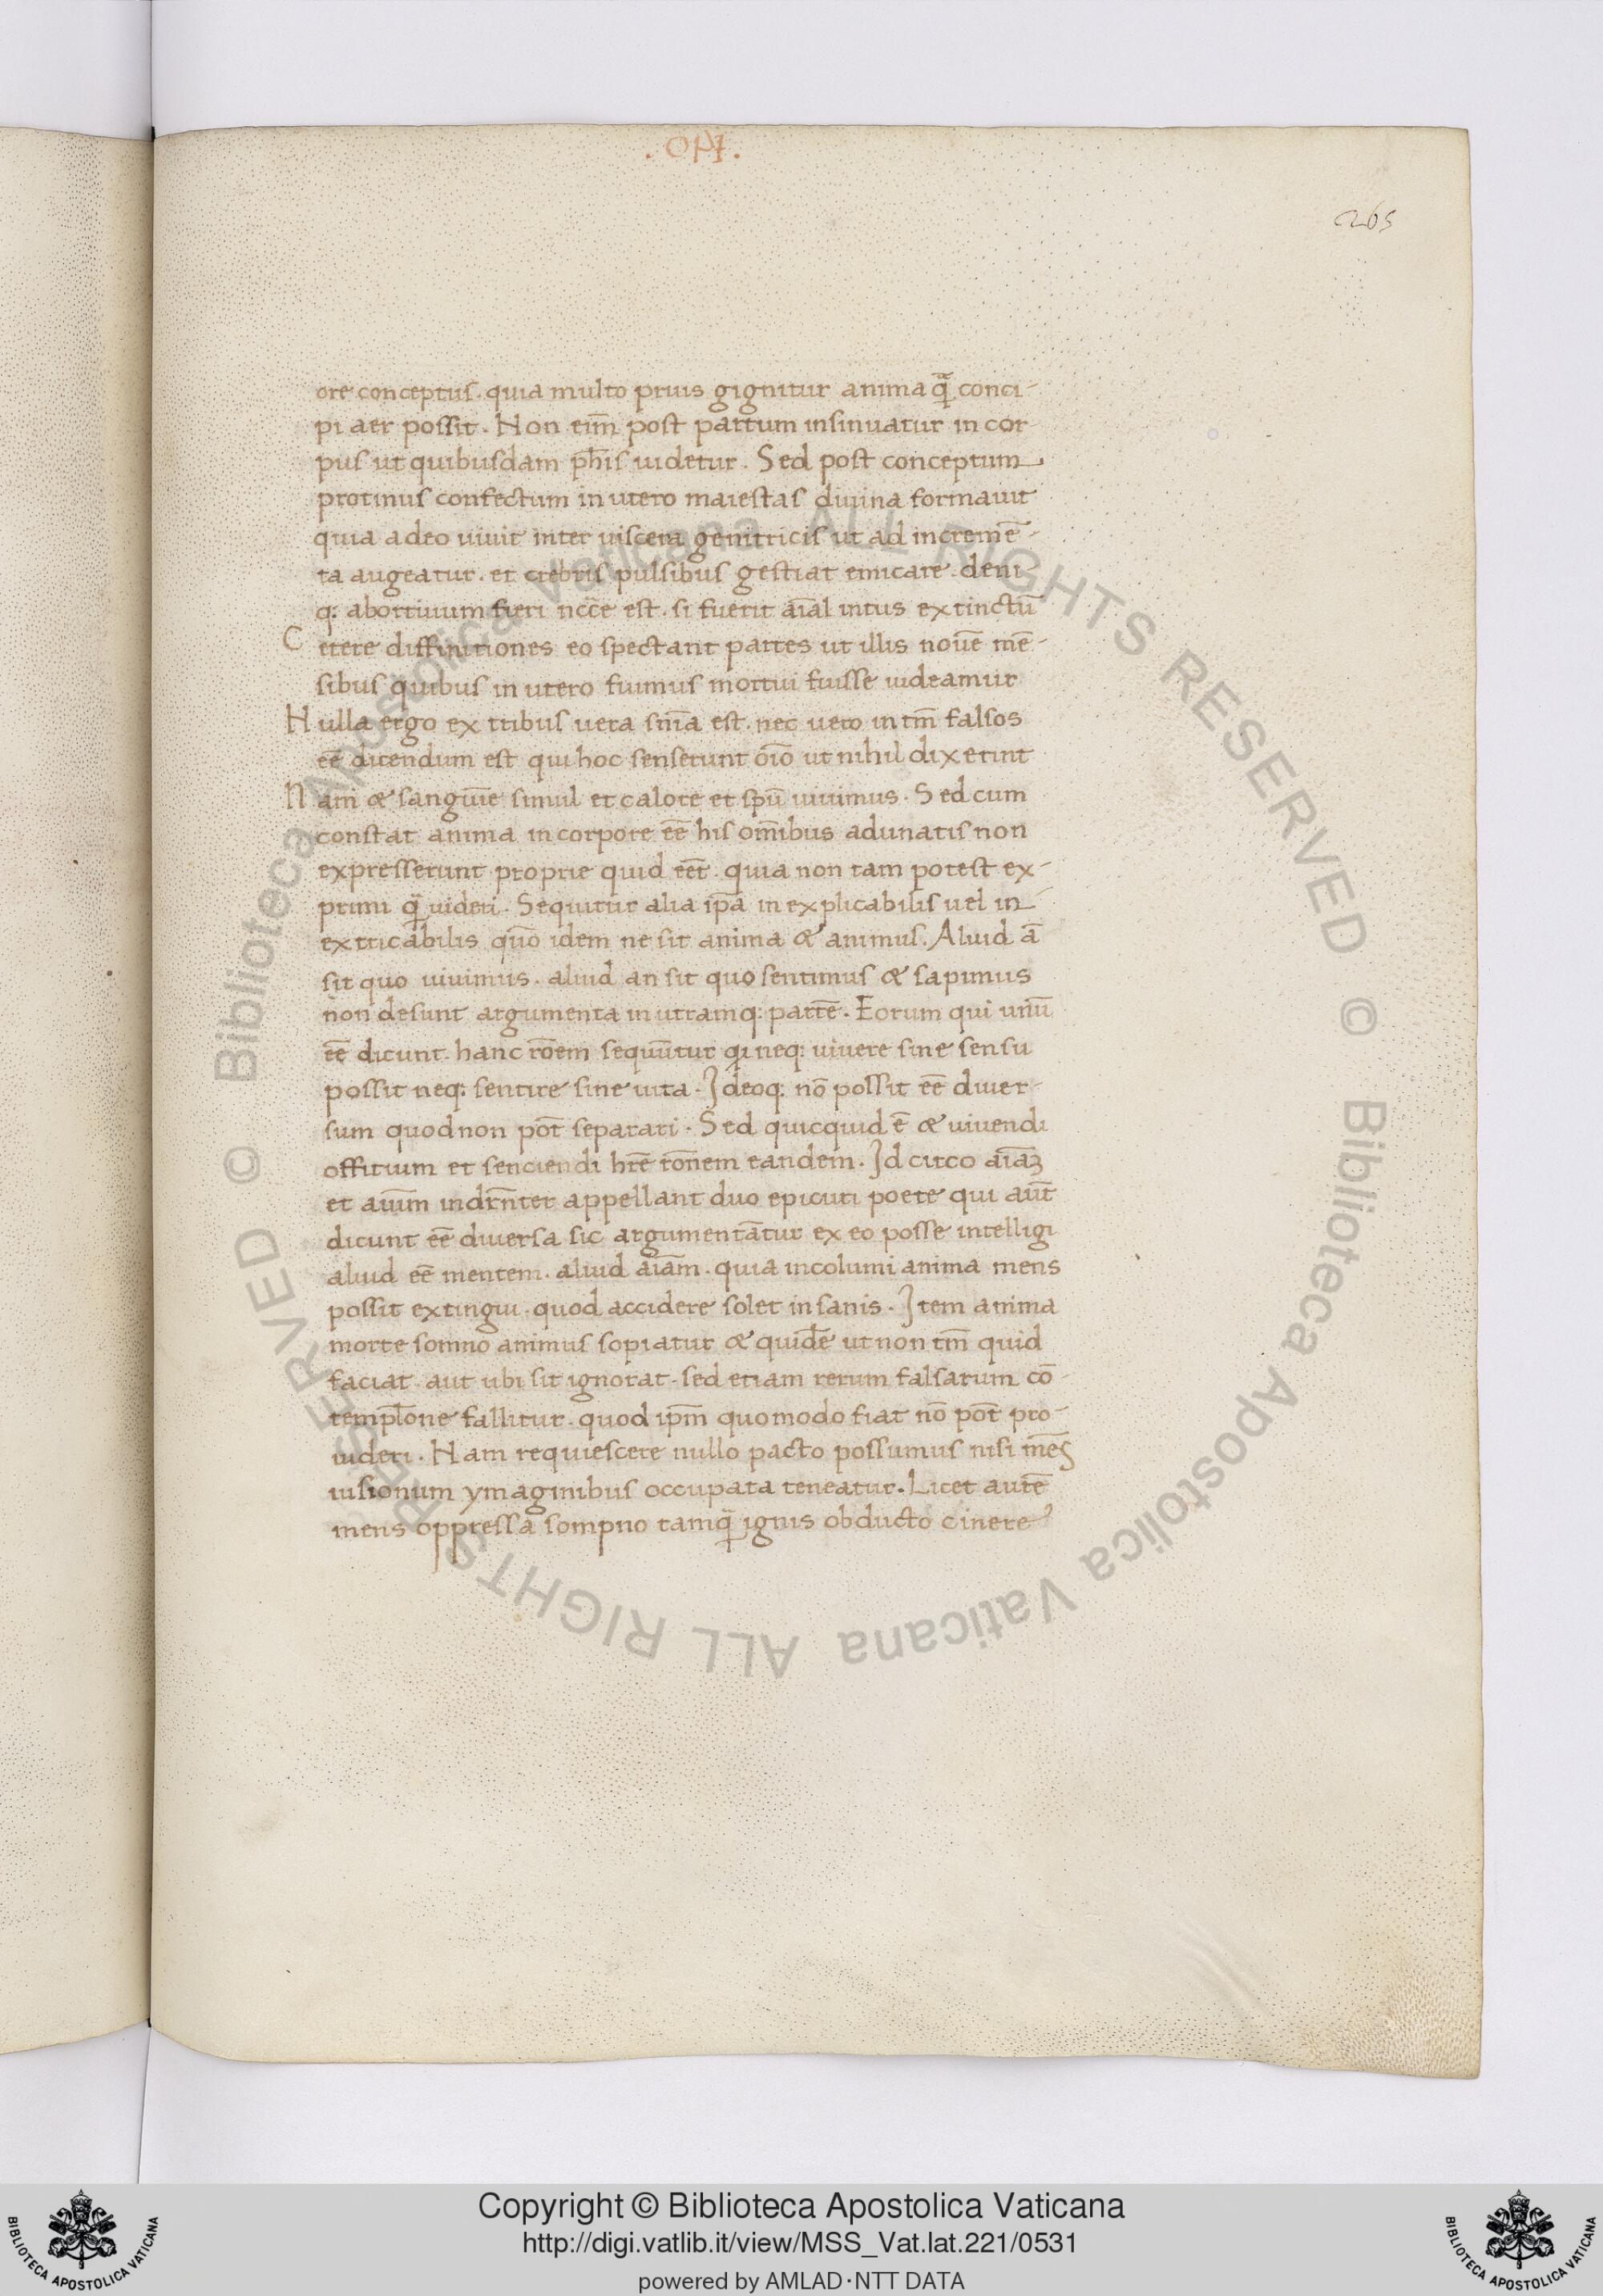 . OPI .
265
ore conceptus. quia multo prius gignitur anima q̃ conci-
pi aer possit. Non eim̄ post partum insinuatur in cor-
pus ut quibusdam ph̄is uidetur. Sed post conceptum
protinus confectum in utero maiestas diuina formauit
quia adeo uiuit inter uiscera genitricis ut ad incremē-
ta augeatur. et crebris pulsibus gestiat emicare. deni-
q: abortiuum fieri ncc̄e est. si fuerit aīal intus extinctū
Cetere diffinitiones eo spectant partes ut illis nouē mē-
sibus quibus in utero fuimus mortui fuisse uideamur
Nulla ergo ex tribus uera snīa est. nec uero in tm̄ falsos
eē dicendum est qui hoc senserunt oīo ut nihil dixerint
Nam & sanguīe simul et calore et spū uiuimus. Sed cum
constat anima in corpore eē his om̄ibus adunatis non
expresserunt proprie quid eēt. quia non tam potest ex-
primi q̃ uideri. Sequitur alia ip̄a inexplicabilis uel in-
extricabilis quō idem ne sit anima & animus. Aliud ā
sit quo uiuimus. aliud an sit quo sentimus & sapimus
non desunt argumenta in utramq: partē. Eorum qui unū
eē dicunt. hanc rōem sequūtur qi neq: uiuere sine sensu
possit neq: sentire sine uita. Ideoq: nō possit eē diuer-
sum quod non pōt separari. Sed quicquid ē & uiuendi
offitium et senciendi hr̄e rōnem eandem. Idcirco aīaꝫ
et aīum indr̄nter appellant duo epicuri poete qui aūt
dicunt eē diuersa sic argumentātur ex eo posse intelligi
aliud eē mentem. aliud aīam. quia incolumi anima mens
possit extingui. quod accidere solet insanis. Item anima
morte somno animus sopiatur & quidē ut non tm̄ quid
faciat. aut ubi sit ignorat. sed etiam rerum falsarum cō-
templ̄one fallitur. quod ip̄m quomodo fiat nō pōt pro-
uideri. Nam requiescere nullo pacto possumus nisi mēs
iusionum ymaginibus occupata teneatur. Licet autē
mens oppressa sompno tamq̃ ignis obducto cinere
© Biblioteca Apostolica Vaticana ALL RIGHTS RESERVED © Biblioteca Apostolica Vaticana ALL RIGHTS RESERVED
Copyright © Biblioteca Apostolica Vaticana
http://digi.vatlib.it/view/MSS_Vat.lat.221/0531
powered by AMLAD·NTT DATA
BIBLIOTECA APOSTOLICA VATICANA
BIBLIOTECA APOSTOLICA VATICANA